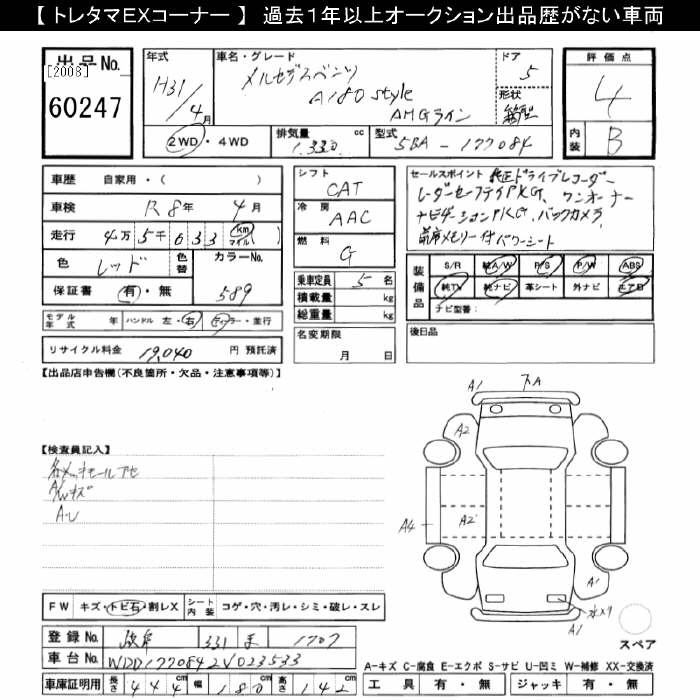 【 トレタマEXコーナー 】 過去1年以上オークション出品歴がない車両
出品No.
[2008]
60247
年式
H31/4月
車名・グレード
メルセデスベンツ
A180 style
AMGライン
ドア
5
形状
箱型
評価点
4
内装
B
2WD・4WD
排気量 1,330 cc
型式 5BA-177084
車歴 自家用・( )
車検 R8年 4月
走行 4万5千633 km マイル ( )
色 レッド
色替
カラーNo. 589
保証書 有・無
モデル年式 年
ハンドル 左・右
ディーラー・並行
リサイクル料金 19,040 円 預託済
シフト
CAT
冷房
AAC
燃料
G
乗車定員 5 名
積載量 kg
総重量 kg
名変期限
月 日
セールスポイント 純正ドライブレコーダー
レーダーセーフティPKG、ワンオーナー
ナビゲーションPKG、バックカメラ
前席メモリー付パワーシート
装備品
S/R 純A/W P/S P/W ABS
純TV 純ナビ 革シート 外ナビ エアB
ナビ型番:
後日品
【出品店申告欄(不良箇所・欠品・注意事項等)】
【検査員記入】
各メッキモールアセ
A/Wキズ
A・U
A1
下A
A2
A4
A2
A1
水X1
A1
スペア
FW キズ・トビ石・割レX
シート内装 コゲ・穴・汚レ・シミ・破レ・スレ
登録No. 331 1707
車台No. WDD1770842V023533
車庫証明用 長さ 444cm 幅 180cm 高さ 142cm
A-キズ C-腐食 E-エクボ S-サビ U-凹ミ W-補修 XX-交換済
工具 有・無 ジャッキ 有・無